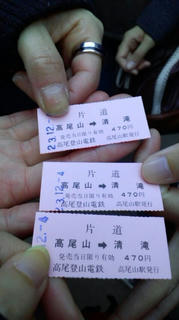 片道
高尾山 ➡ 清滝
発売当日限り有効 470円
高尾登山電鉄 高尾山駅発行
23.12.-4
片道
高尾山 ➡ 清滝
発売当日限り有効 470円
高尾登山電鉄 高尾山駅発行
2.-4
片道
高尾山 ➡ 清滝
発売当日限り有効 470円
高尾登山電鉄 高尾山駅発行